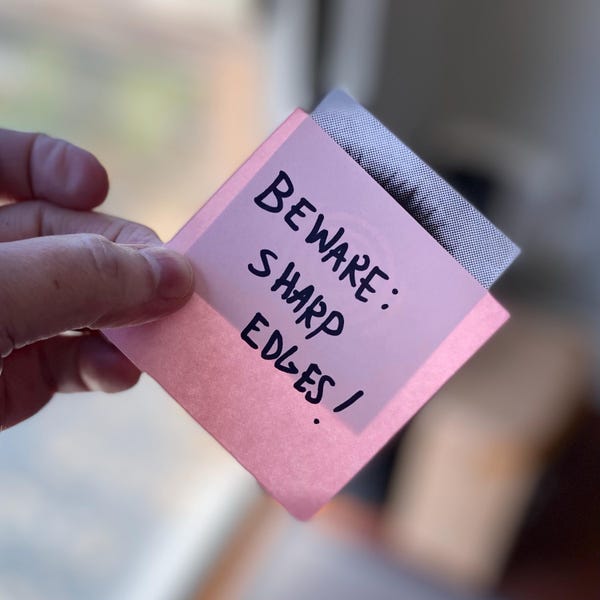 BEWARE:
SHARP
EDGES!